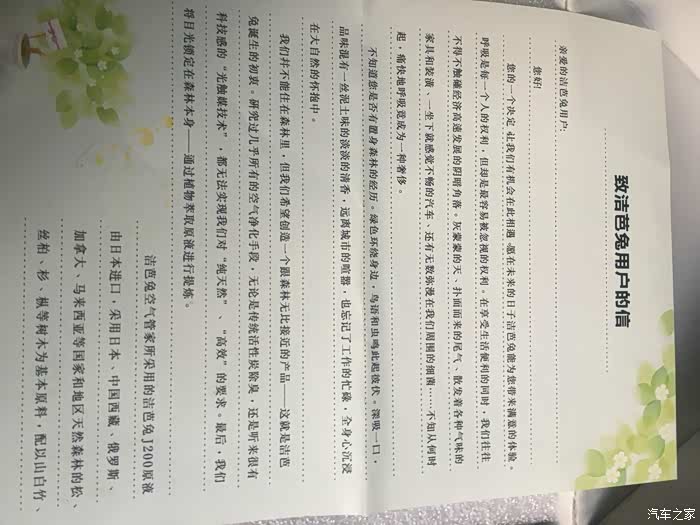 致洁芭兔用户的信
亲爱的洁芭兔用户:
您好!
您的一个决定,让我们有机会在此相遇,愿在未来的日子洁芭兔能为您带来满意的体验。
呼吸是每一个人的权利,但却是最容易被忽视的权利。在享受生活便利的同时,我们往往
不得不触碰经济高速发展的阴暗角落。灰蒙蒙的天、扑面而来的尾气、散发着各种气味的
家具和装潢、一坐下就感觉不畅的汽车、还有无数弥漫在我们周围的细菌……不知从何时
起,痛快地呼吸竟成为一种奢侈。
不知道您是否有置身森林的经历。绿色环绕身边,鸟语和虫鸣此起彼伏。深吸一口,
品味混有一丝泥土味的淡淡的清香,远离城市的喧嚣,也忘记了工作的忙碌,全身心沉浸
在大自然的怀抱中。
我们并不能住在森林里,但我们希望创造一个跟森林无比接近的产品——这就是洁芭
兔诞生的初衷。研究过几乎所有的空气净化手段,无论是传统活性炭除臭,还是听来很有
科技感的“光触媒技术”,都无法实现我们对“纯天然”、“高效”的要求。最后,我们
将目光锁定在森林本身——通过植物萃取原液进行提炼。
洁芭兔空气管家所采用的洁芭兔J200原液
由日本进口,采用日本、中国西藏、俄罗斯、
加拿大、马来西亚等国家和地区天然森林的松、
丝柏、杉、枞等树木为基本原料,配以山白竹、
汽车之家